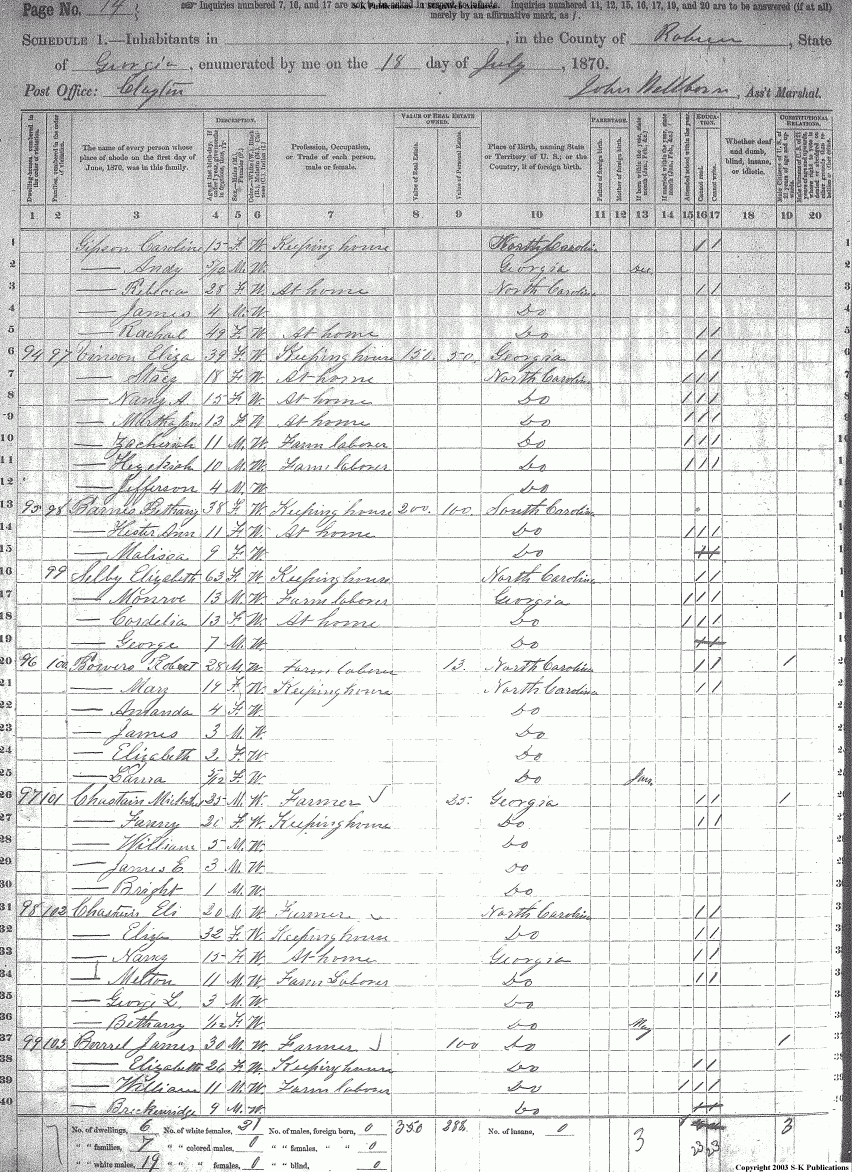 Page No. 14
Inquiries numbered 7, 16, and 17 are not to be asked in respect to infants. Inquiries numbered 11, 12, 15, 16, 17, 19, and 20 are to be answered (if at all) merely by an affirmative mark, as /.
SCHEDULE 1.—Inhabitants in , in the County of Rabun, State
of Georgia, enumerated by me on the 18 day of July, 1870.
Post Office: Clayton John Wellborn, Ass't Marshal.
DESCRIPTION. VALUE OF REAL ESTATE OWNED. PARENTAGE. EDUCATION. CONSTITUTIONAL RELATIONS.
The name of every person whose place of abode on the first day of June, 1870, was in this family.
Profession, Occupation, or Trade of each person, male or female.
Value of Real Estate. Value of Personal Estate.
Place of Birth, naming State or Territory of U. S.; or the Country, if of foreign birth.
Father of foreign birth. Mother of foreign birth.
Attended school within the year. Cannot read. Cannot write.
Whether deaf and dumb, blind, insane, or idiotic.
1 2 3 4 5 6 7 8 9 10 11 12 13 14 15 16 17 18 19 20
1 Gipson Caroline 15 F. W. Keeping house North Carolina / /
2 — Andy /12 M. W. Georgia Dec.
3 — Rebecca 28 F. W. At home North Carolina / /
4 — James 4 M. W. Do
5 — Rachael 49 F. W. At home Do / /
6 94 97 Vinson Eliza 39 F. W. Keeping house 150. 50. Georgia / /
7 — Stacy 18 F. W. At home North Carolina / / /
8 — Nancy A. 15 F. W. At home Do / / /
9 — Martha Jane 13 F W At home Do / / /
10 — Zacheriah 11 M. W. Farm laborer Do / / /
11 — Hezekiah 10 M. W. Farm laborer Do / / /
12 — Jefferson 4 M. W. Do
13 95 98 Barnes Bethany 38 F. W. Keeping house 200. 100. South Carolina
14 — Hester Ann 11 F. W. At home Do / / /
15 — Malissa 9 F. W. Do
16 99 Selby Elizabeth 63 F. W. Keeping house North Carolina / /
17 — Monroe 13 M. W. Farm laborer Georgia / / /
18 — Cordelia 13 F. W. At home Do / / /
19 — George 7 M. W. Do
20 96 100 Bowers Robert 28 M. W. Farm laborer 13. North Carolina / / /
21 — Mary 19 F. W. Keeping house North Carolina / /
22 — Amanda 4 F. W. Do
23 — James 3 M. W. Do
24 — Elizabeth 2 F. W. Do
25 — Laura /12 F. W. Do Jan.
26 97 101 Chastain 25 M. W. Farmer 25. Georgia / / /
27 — Fanny 21 F. W. Keeping house Do / /
28 — William 5 M. W. Do
29 — James E. 3 M. W. Do
30 — Bright 1 M. W. Do
31 98 102 Chastain Eli 20 M. W. Farmer North Carolina / /
32 — Eliza 32 F. W. Keeping house Do / /
33 — Nancy 15 F. W. At home Georgia / /
34 — Melton 11 M. W. Farm Laborer Do / /
35 — George L. 3 M. W. Do
36 — Bethany 1/12 F. W. Do May
37 99 103 Borrel James 30 M. W. Farmer 100 Do /
38 — Elizabeth 26 F. W. Keeping house Do / /
39 — William 11 M. W. Farm laborer Do / / /
40 — Breckenridge 9 M. W. Do
No. of dwellings, 6 No. of white females, 21 No. of males, foreign born, 0 350 288 No. of insane, 0 3 23 23 3
" " families, 7 " " colored males, 0 " " females, " " 0
" " white males, 19 " " " females, 0 " " blind, 0
Copyright 2003 S-K Publications